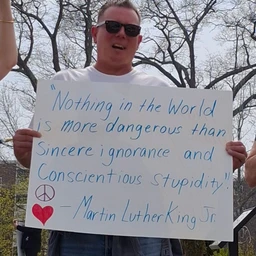 "Nothing in the World
is more dangerous than
sincere ignorance and
Conscientious Stupidity".
- Martin Luther King Jr